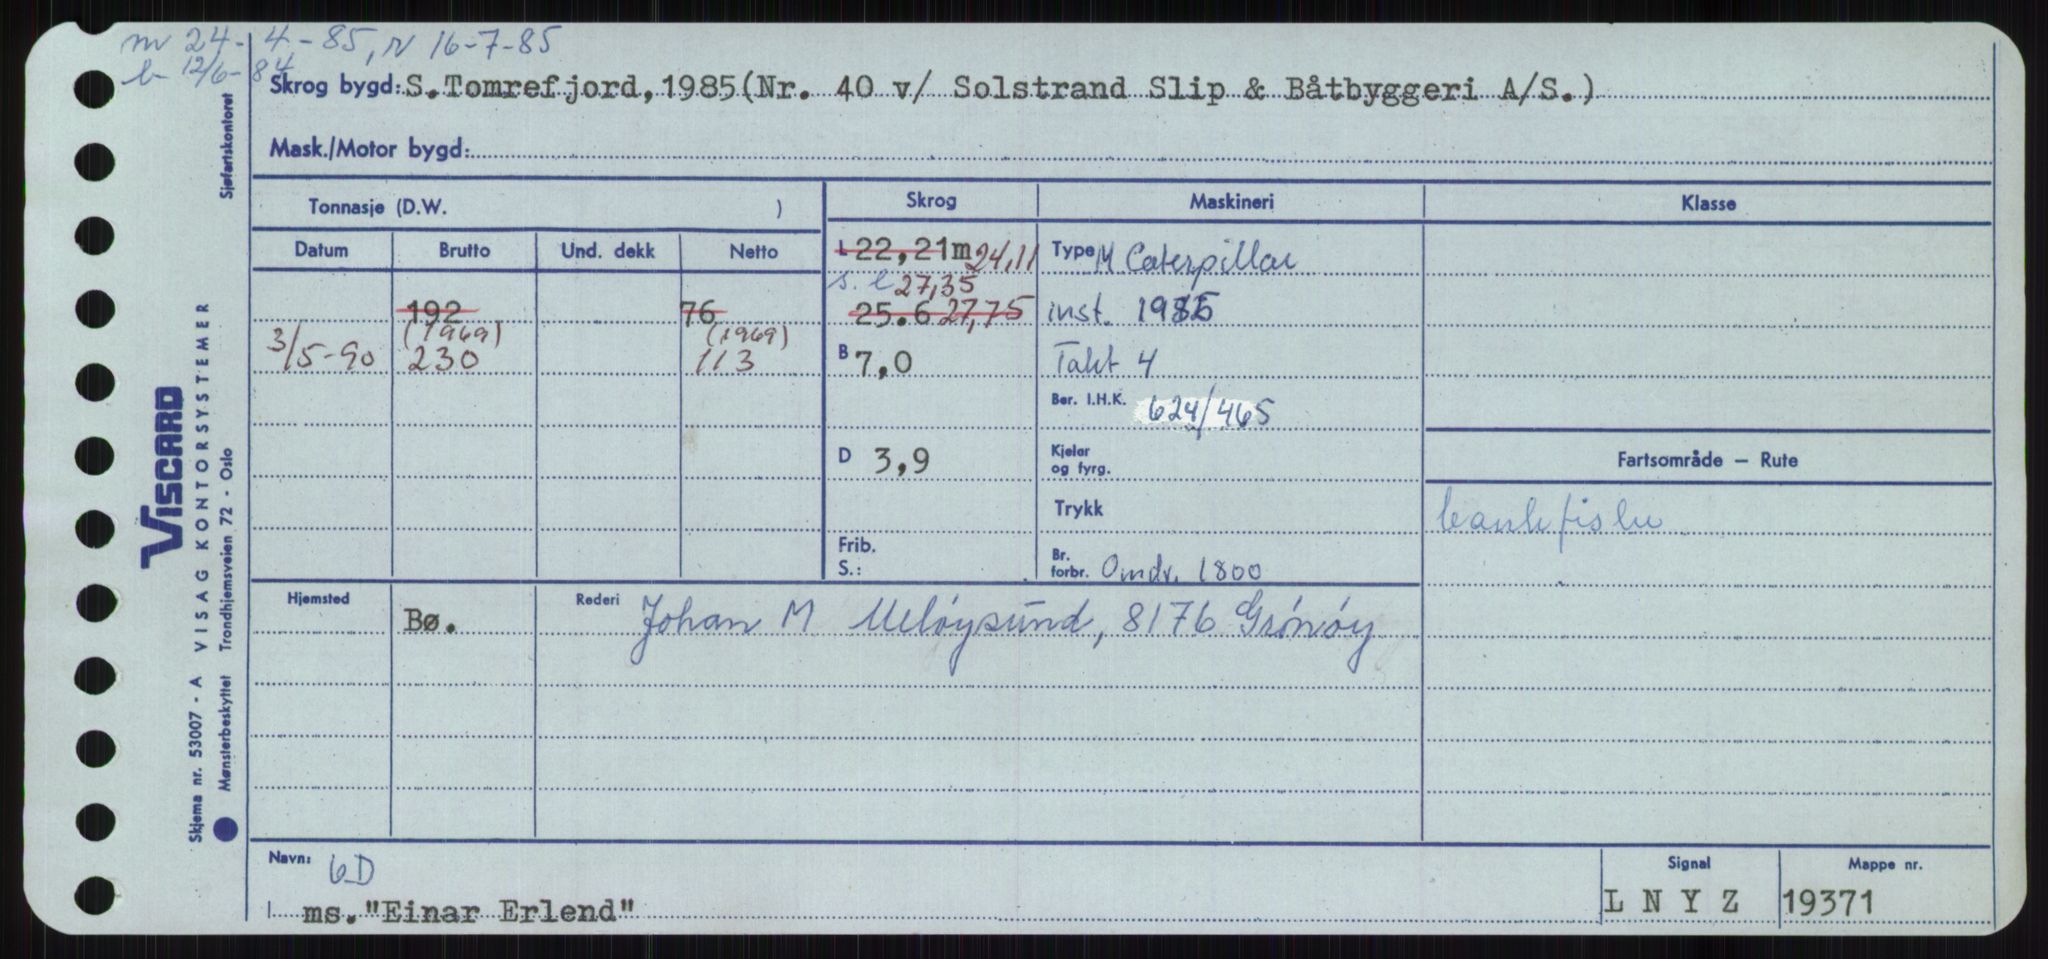 m 24-4-85, r 16-7-85
b 12/6-84
Skrog bygd: S.Tomrefjord, 1985(Nr. 40 v/ Solstrand Slip & Båtbyggeri A/S.)
Mask./Motor bygd:
Sjøfartskontoret
Tonnasje (D.W. )
Skrog
Maskineri
Klasse
Datum
Brutto
Und. dekk
Netto
L 22,21m 24,11
Type M Caterpillar
s. l 27,35
192
76
25.6 27,75
inst. 1985
(1969)
(1969)
3/5-90 230 113
B 7,0
Takt 4
Ber. I.H.K. 624/465
D 3,9
Kjeler og fyrg.
Fartsområde — Rute
Trykk
bankfiske
Frib.
S.:
Br. forbr. Omdr. 1800
Hjemsted
Bø.
Rederi Johan M Meløysund, 8176 Grönöy
VISCARD
VISAG KONTORSYSTEMER
Skjema nr. 53007 - A
Mønsterbeskyttet Trondhjemsveien 72 - Oslo
Navn: 6D
ms."Einar Erlend"
Signal
L N Y Z
Mappe nr.
19371